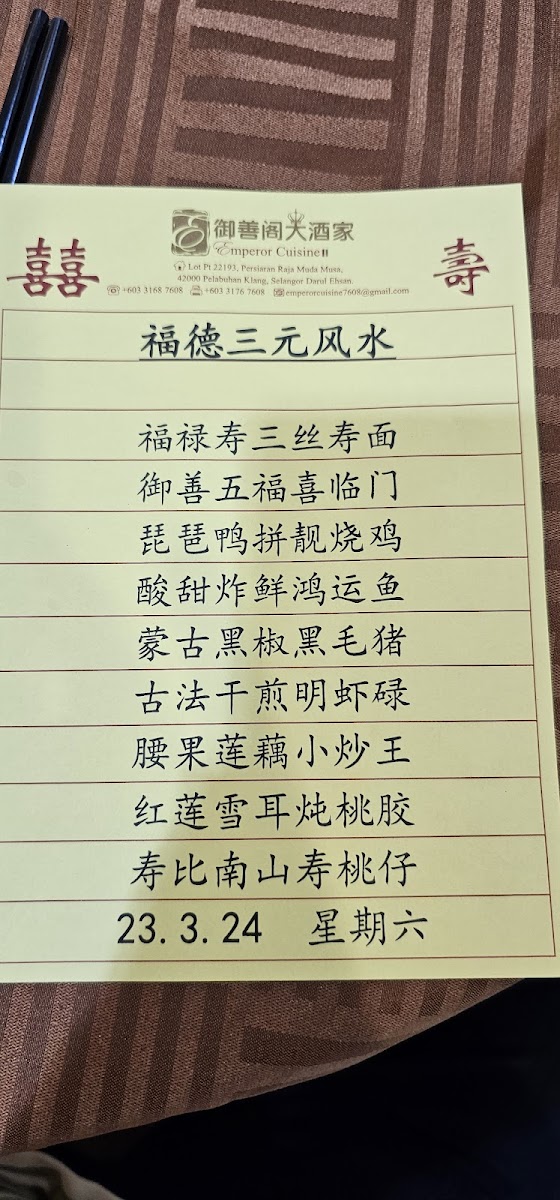 御善阁大酒家
Emperor Cuisine II
Lot Pt 22193, Persiaran Raja Muda Musa,
42000 Pelabuhan Klang, Selangor Darul Ehsan.
+603 3168 7608 +603 3176 7608 emperorcuisine7608@gmail.com
囍
壽
福德三元风水
福禄寿三丝寿面
御善五福喜临门
琵琶鸭拼靓烧鸡
酸甜炸鲜鸿运鱼
蒙古黑椒黑毛猪
古法干煎明虾碌
腰果莲藕小炒王
红莲雪耳炖桃胶
寿比南山寿桃仔
23.3.24 星期六